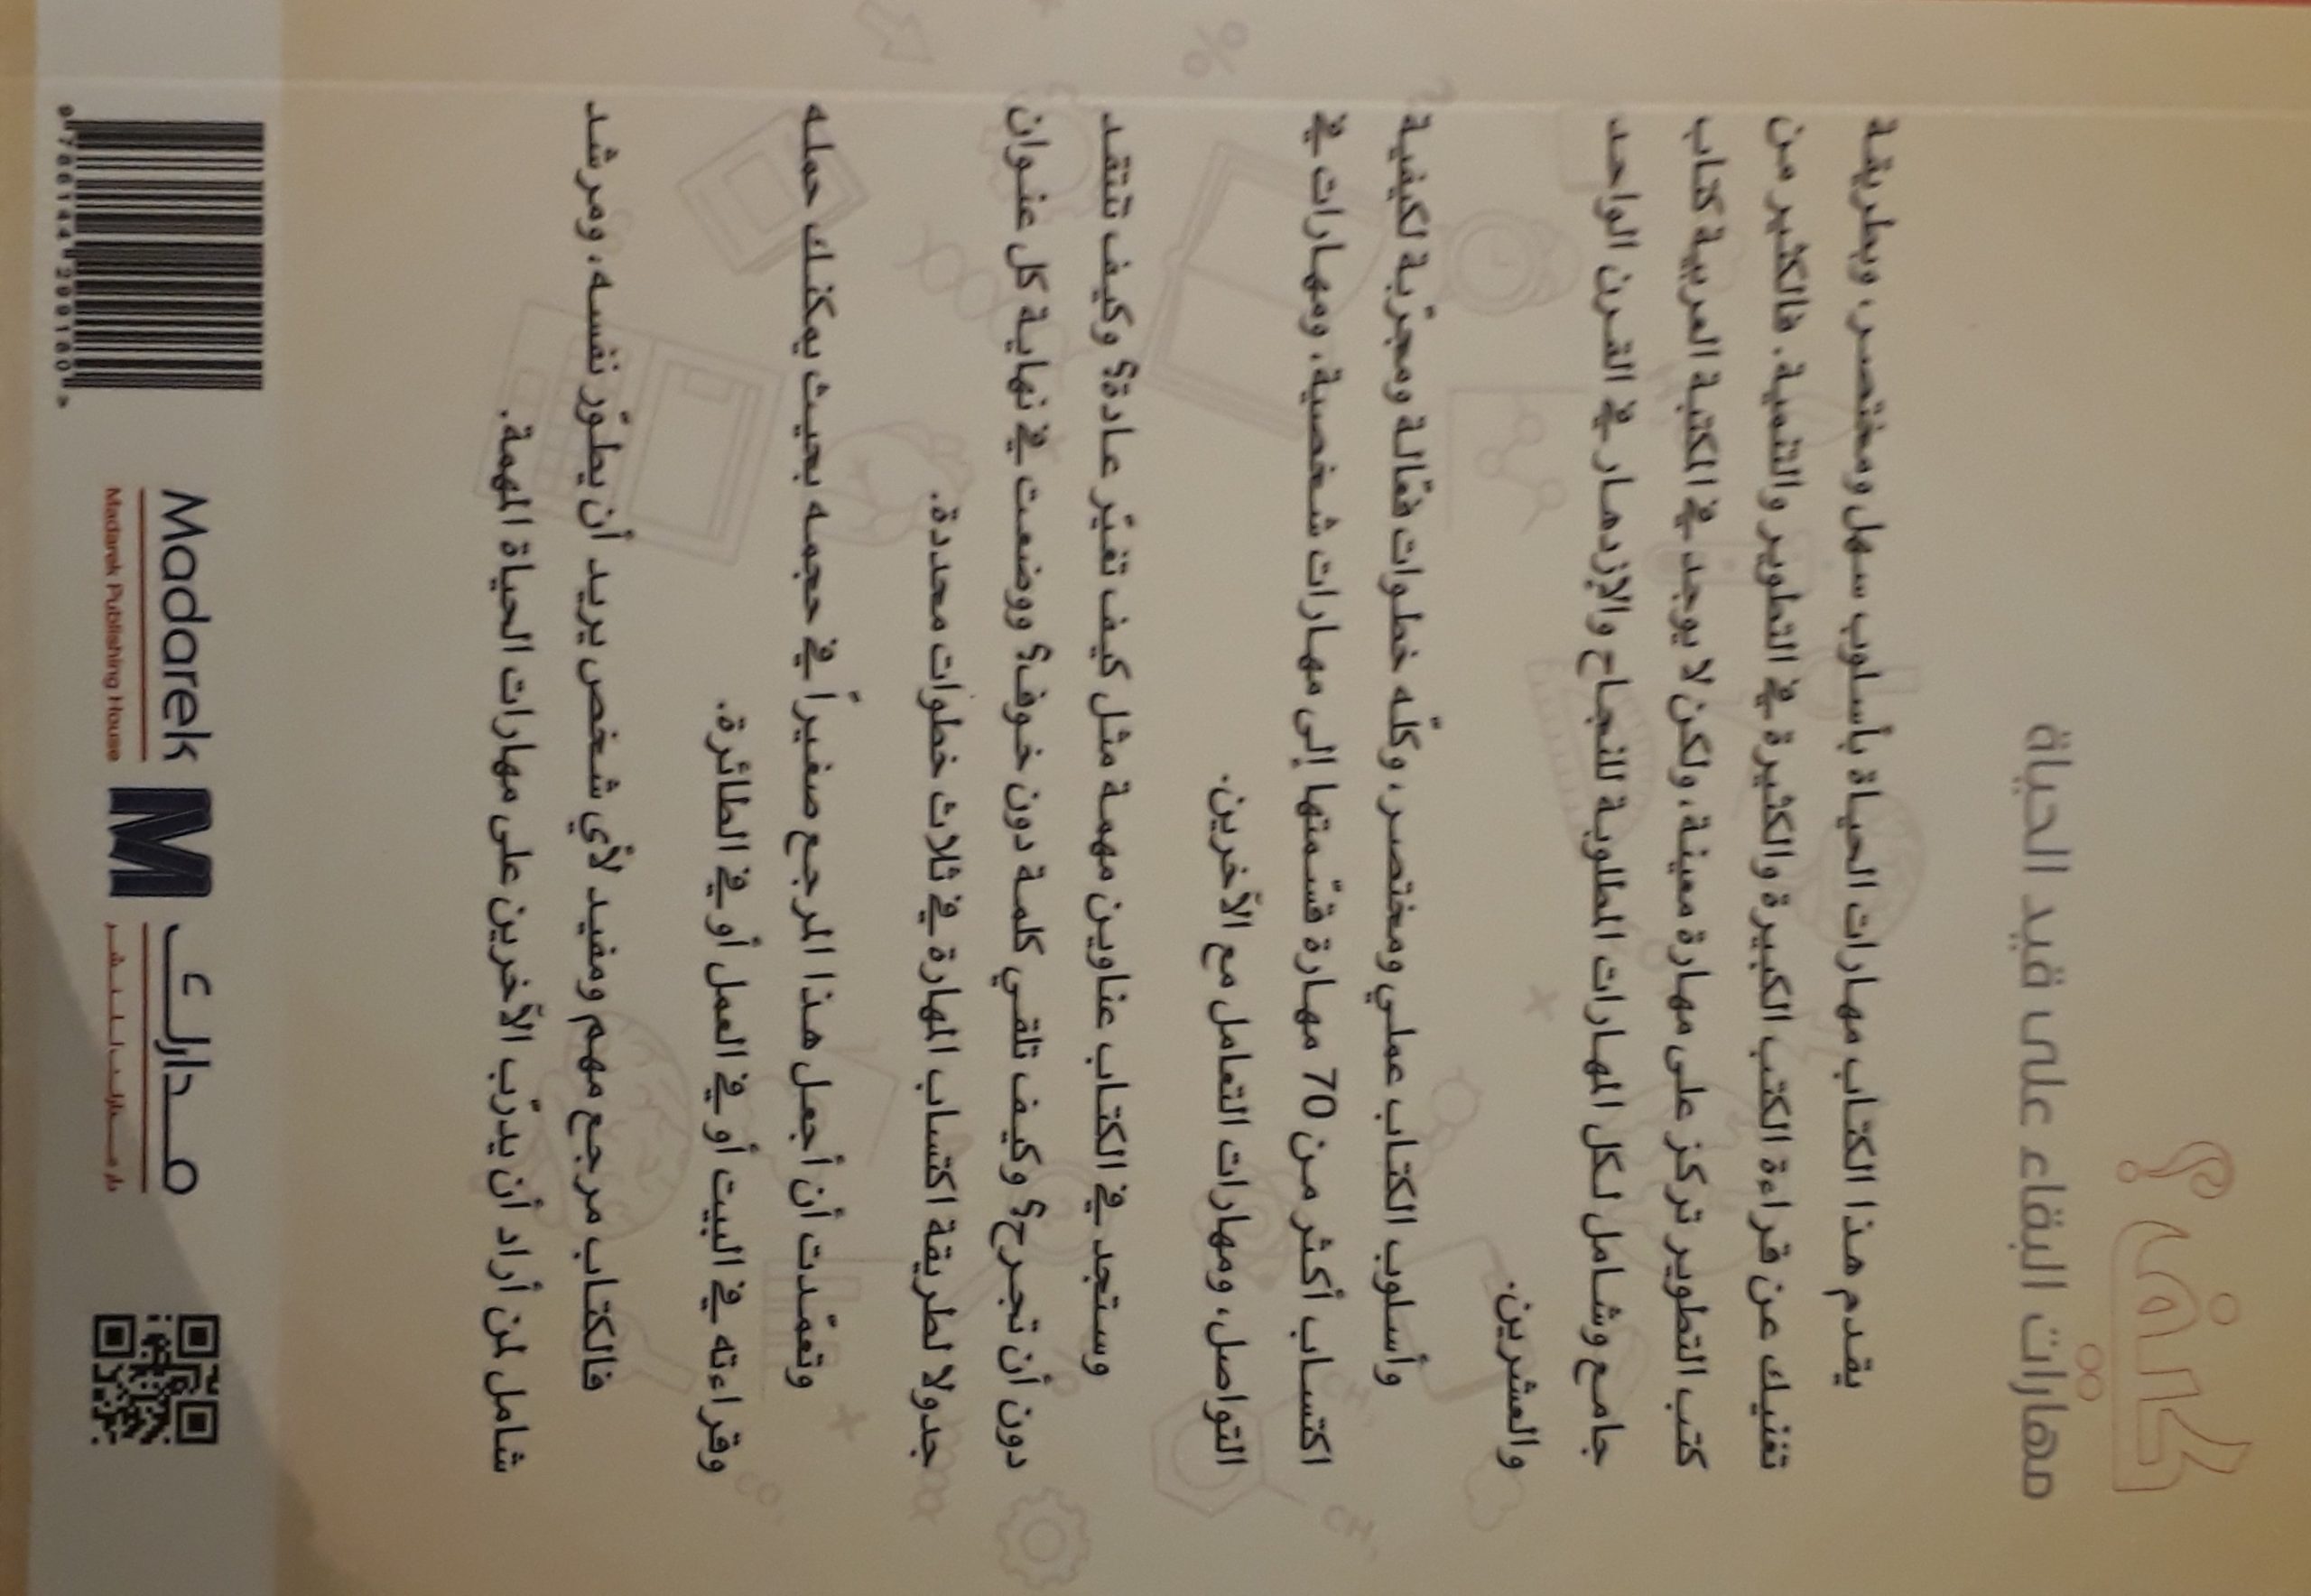 كيف؟
مهارات البقاء على قيد الحياة
يقدم هذا الكتاب مهارات الحياة بأسلوب سهل ومختصر، وبطريقة
تغنيك عن قراءة الكتب الكبيرة والكثيرة في التطوير والتنمية. فالكثير من
كتب التطوير تركز على مهارة معينة، ولكن لا يوجد في المكتبة العربية كتاب
جامع وشامل لكل المهارات المطلوبة للنجاح والإزدهار في القرن الواحد
والعشرين.
وأسلوب الكتاب عملي ومختصر، وكلّه خطوات فعّالة ومجرّبة لكيفية
اكتساب أكثر من 70 مهارة قسّمتها إلى مهارات شخصية، ومهارات في
التواصل، ومهارات التعامل مع الآخرين.
وستجد في الكتاب عناوين مهمة مثل كيف تغيّر عادة؟ وكيف تنتقد
دون أن تجرح؟ وكيف تلقي كلمة دون خوف؟ ووضعت في نهاية كل عنوان
جدولا لطريقة اكتساب المهارة في ثلاث خطوات محددة.
وتعمّدت أن أجعل هذا المرجع صغيراً في حجمه بحيث يمكنك حمله
وقراءته في البيت أو في العمل أو في الطائرة.
فالكتاب مرجع مهم ومفيد لأي شخص يريد أن يطوّر نفسه، ومرشد
شامل لمن أراد أن يدرّب الآخرين على مهارات الحياة المهمة.
Madarek M مدارك
Madarek Publishing House